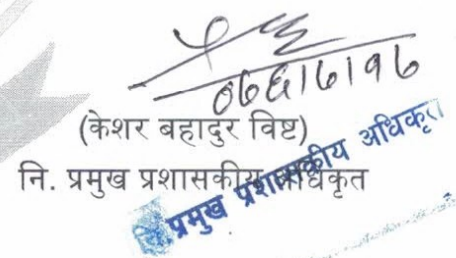 ०७६।७।१७
(केशर बहादुर विष्ट)
नि. प्रमुख प्रशासकीय अधिकृत
नि. प्रमुख प्रशासकीय अधिकृत